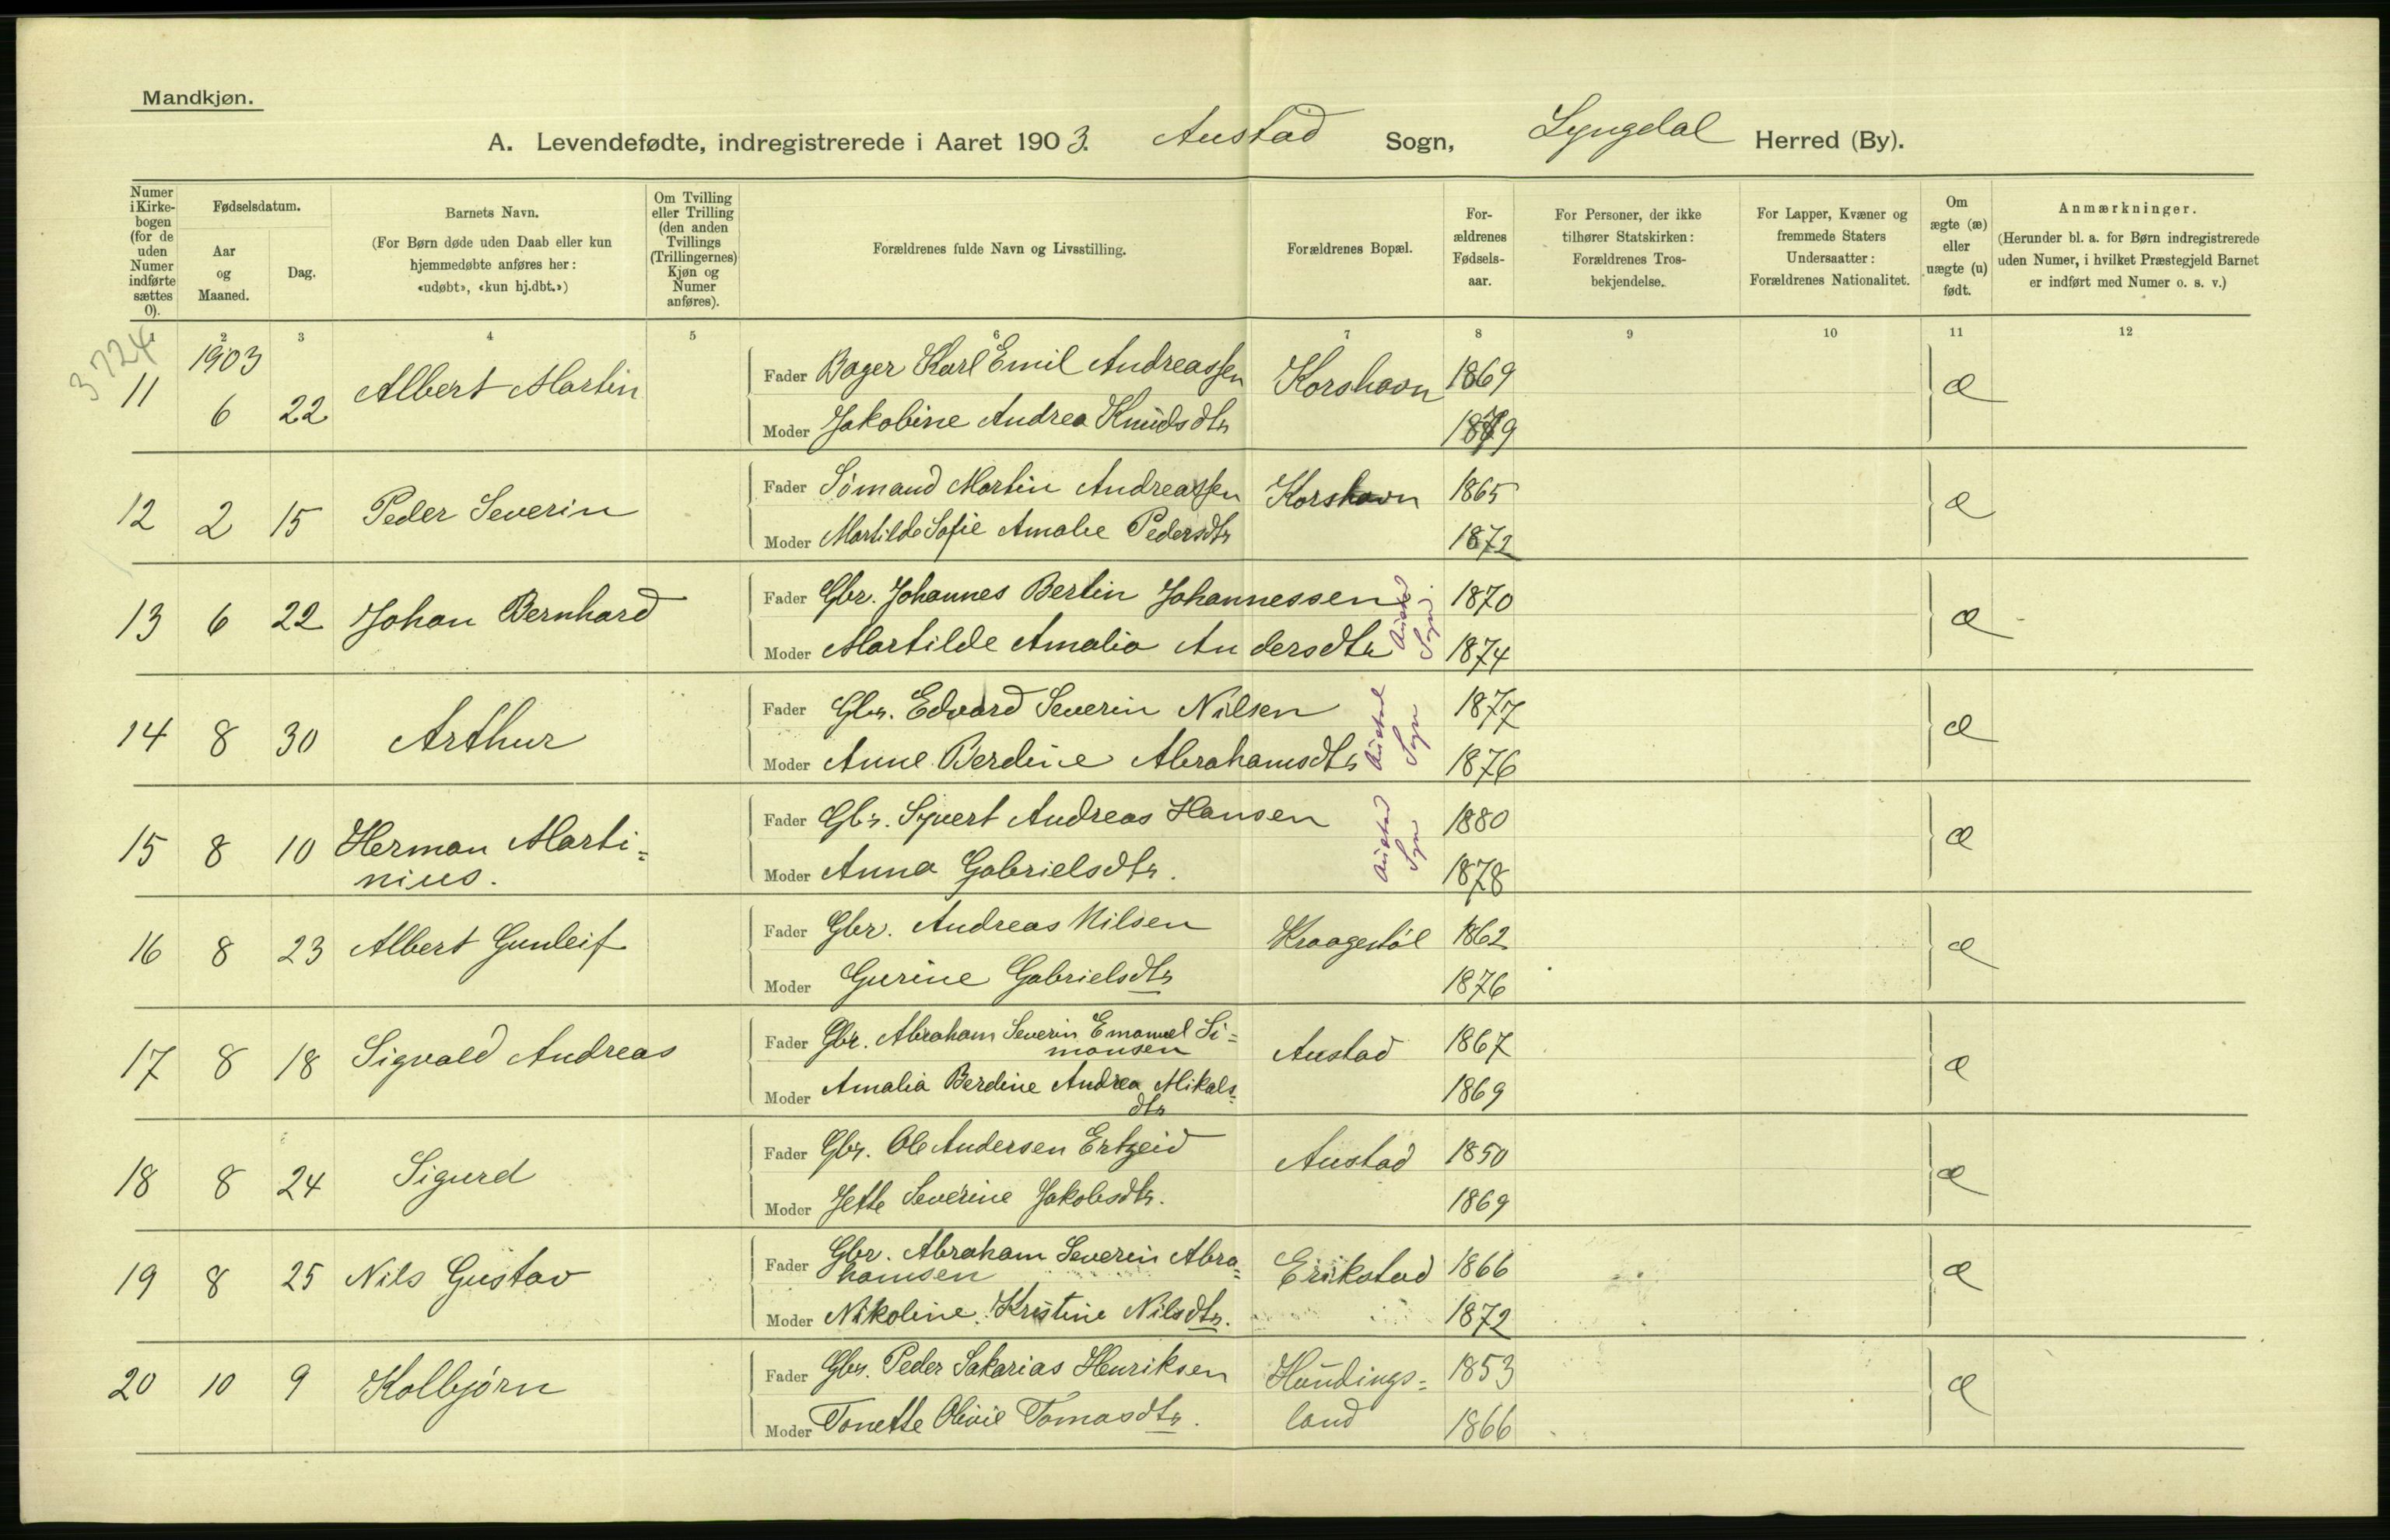 Mandkjøn.
A. Levendefødte, indregistrerede i Aaret 1903. Austad Sogn, Lyngdal Herred (By).
Numer i Kirke-bogen (for de uden Numer indførte sættes 0).
Fødselsdatum.
Aar og Maaned.
Dag.
Barnets Navn.
(For Børn døde uden Daab eller kun hjemmedøbte anføres her: «udøbt», «kun hj.dbt.»)
Om Tvilling eller Trilling (den anden Tvillings (Trillingernes) Kjøn og Numer anføres).
Forældrenes fulde Navn og Livsstilling.
Forældrenes Bopæl.
For-ældrenes Fødsels-aar.
For Personer, der ikke tilhører Statskirken: Forældrenes Tros-bekjendelse.
For Lapper, Kvæner og fremmede Staters Undersaatter: Forældrenes Nationalitet.
Om ægte (æ) eller uægte (u) født.
Anmærkninger.
(Herunder bl. a. for Børn indregistrerede uden Numer, i hvilket Præstegjeld Barnet er indført med Numer o. s. v.)
1 2 3 4 5 6 7 8 9 10 11 12
3724
1903
11 6 22 Albert Martin Fader Bager Karl Emil Andreassen Korshavn 1869 æ
Moder Jakobine Andrea Knudsdtr 1879
12 2 15 Peder Severin Fader Sømand Martin Andreassen Korshavn 1865 æ
Moder Martilde Sofie Amalie Pedersdtr 1872
13 6 22 Johan Bernhard Fader Gbr. Johannes Bertin Johannessen Austad Sogn. 1870 æ
Moder Martilde Amalia Andersdtr 1874
14 8 30 Arthur Fader Gbr. Edvard Severin Nilsen Austad Sogn 1877 æ
Moder Anne Berdine Abrahamsdtr 1876
15 8 10 Herman Marti= Fader Gbr. Syvert Andreas Hansen Austad Sogn 1880 æ
nius. Moder Anna Gabrielsdtr. 1878
16 8 23 Albert Gunleif Fader Gbr. Andreas Nilsen Kraagestøl 1862 æ
Moder Gurine Gabrielsdtr 1876
17 8 18 Sigvald Andreas Fader Gbr. Abraham Severin Emanuel Si= Austad 1867 æ
monsen
Moder Amalia Berdine Andrea Mikals= 1869
dtr
18 8 24 Sigurd Fader Gbr. Ole Andersen Ertzeid Austad 1850 æ
Moder Jette Severine Jakobsdtr. 1869
19 8 25 Nils Gustav Fader Gbr. Abraham Severin Abra= Erikstad 1866 æ
hamsen
Moder Nikoline Kristine Nilsdtr. 1872
20 10 9 Kolbjørn Fader Gbr. Peder Sakarias Henriksen Hundings= 1853 æ
Moder Tonette Olivie Tomasdtr. land 1866